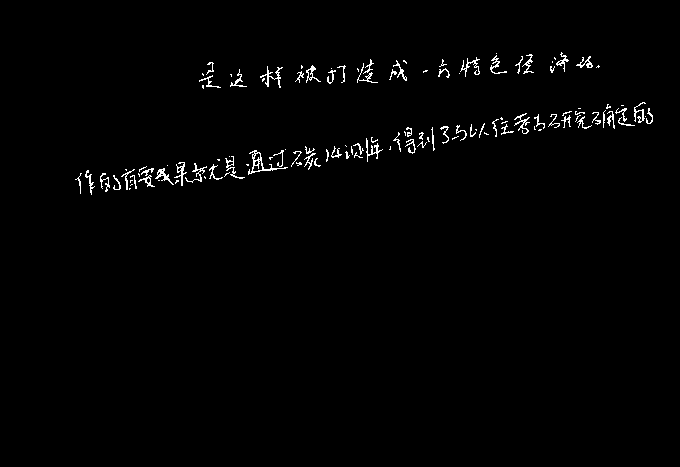 是这样被打造成一方特色经济的.
作的首要成果就是通过碳14测年,得到了与以往考古研究确定的